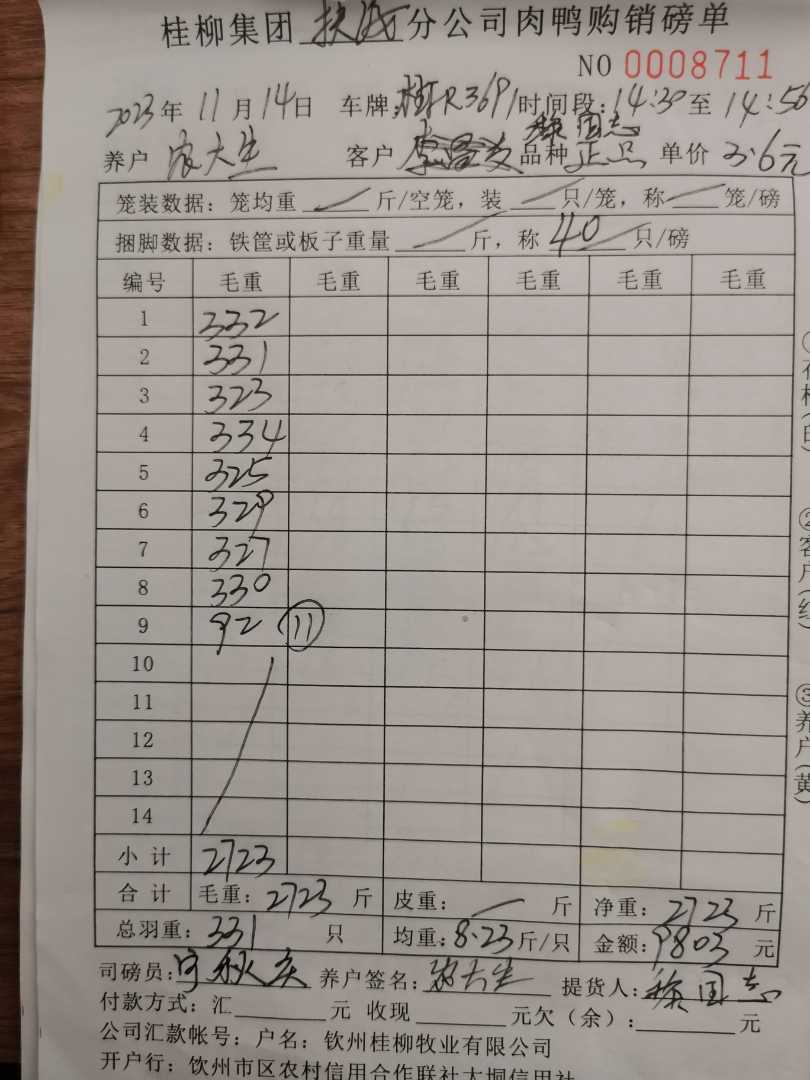 桂柳集团 扶 分公司肉鸭购销磅单
NO 0008711
2023年 11月 14日 车牌: 桂R3691 时间段: 14:30 至 14:56
徐国志
养户 农大生 客户 品种 正只 单价 3.6元
笼装数据: 笼均重 / 斤/空笼, 装 / 只/笼, 称 / 笼/磅
捆脚数据: 铁筐或板子重量 / 斤, 称 40 只/磅
编号 毛重 毛重 毛重 毛重 毛重 毛重
1 332
2 331
3 323
4 334
5 325
6 329
7 327
8 330
9 92 ⑪
10
11
12
13
14
小 计 2723
合 计 毛重: 2723 斤 皮重: / 斤 净重: 2723 斤
总羽重: 331 只 均重: 8.23 斤/只 金额: 9803 元
司磅员: 秋 养户签名: 农大生 提货人: 徐国志
付款方式: 汇 元 收现 元欠(余): 元
公司汇款帐号: 户名: 钦州桂柳牧业有限公司
开户行: 钦州市区农村信用合作联社大垌信用社
②客户(红)
③养户(黄)